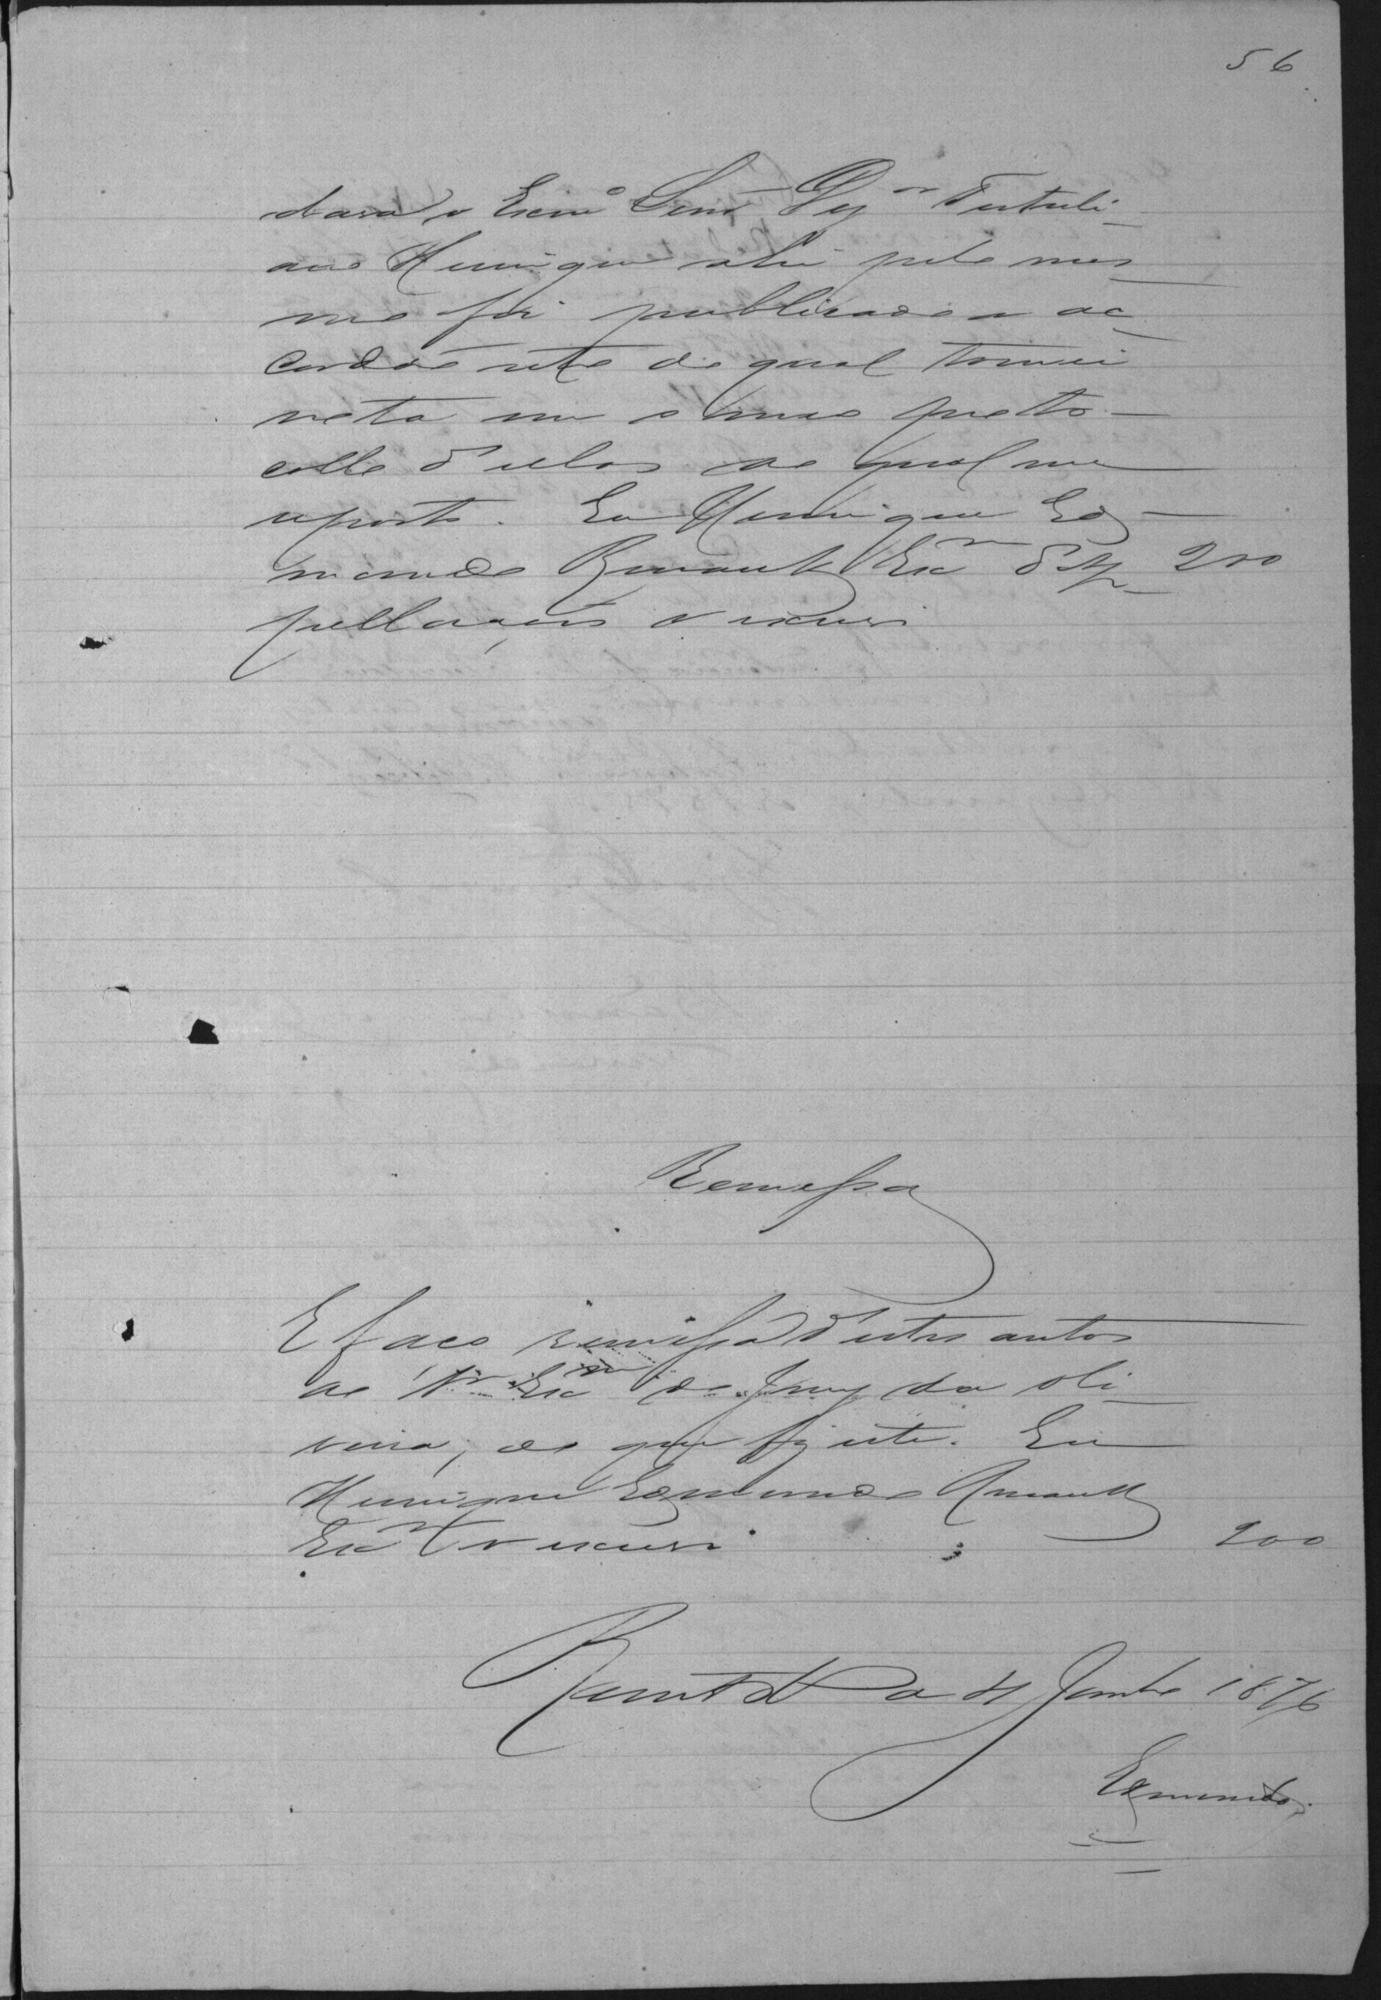 56
dava o Exmº Senr Dezor Tertuli-
ano Henriques ahi pelo mes-
mo foi publicado o ac-
cordão retro do qual tomei
nota em o meu proto-
collo d'elas ao qual me
reporto. Eu Henrique Ed-
mundo Renault Escm d'Ap- 200
pellações o escrevi
Remessa
E faço remessa d'estes autos
ao Escm do Jury da Oli-
veira, do que fiz este. Eu
Henrique Edmundo Renault
Escm o escrevi. 200
a 4 Junho 1876
Edmundo